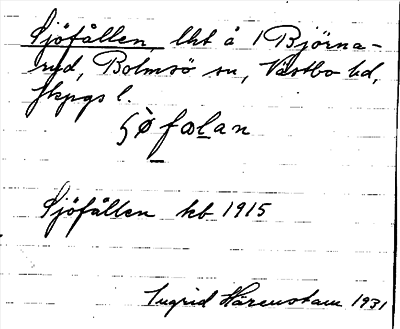 Sjöfållen, lht å 1 Björna-
rud, Bolmsö sn, Västbo hd,
Jkpgs l.
Sjöfållen kb 1915
Ingrid Härenstam 1931